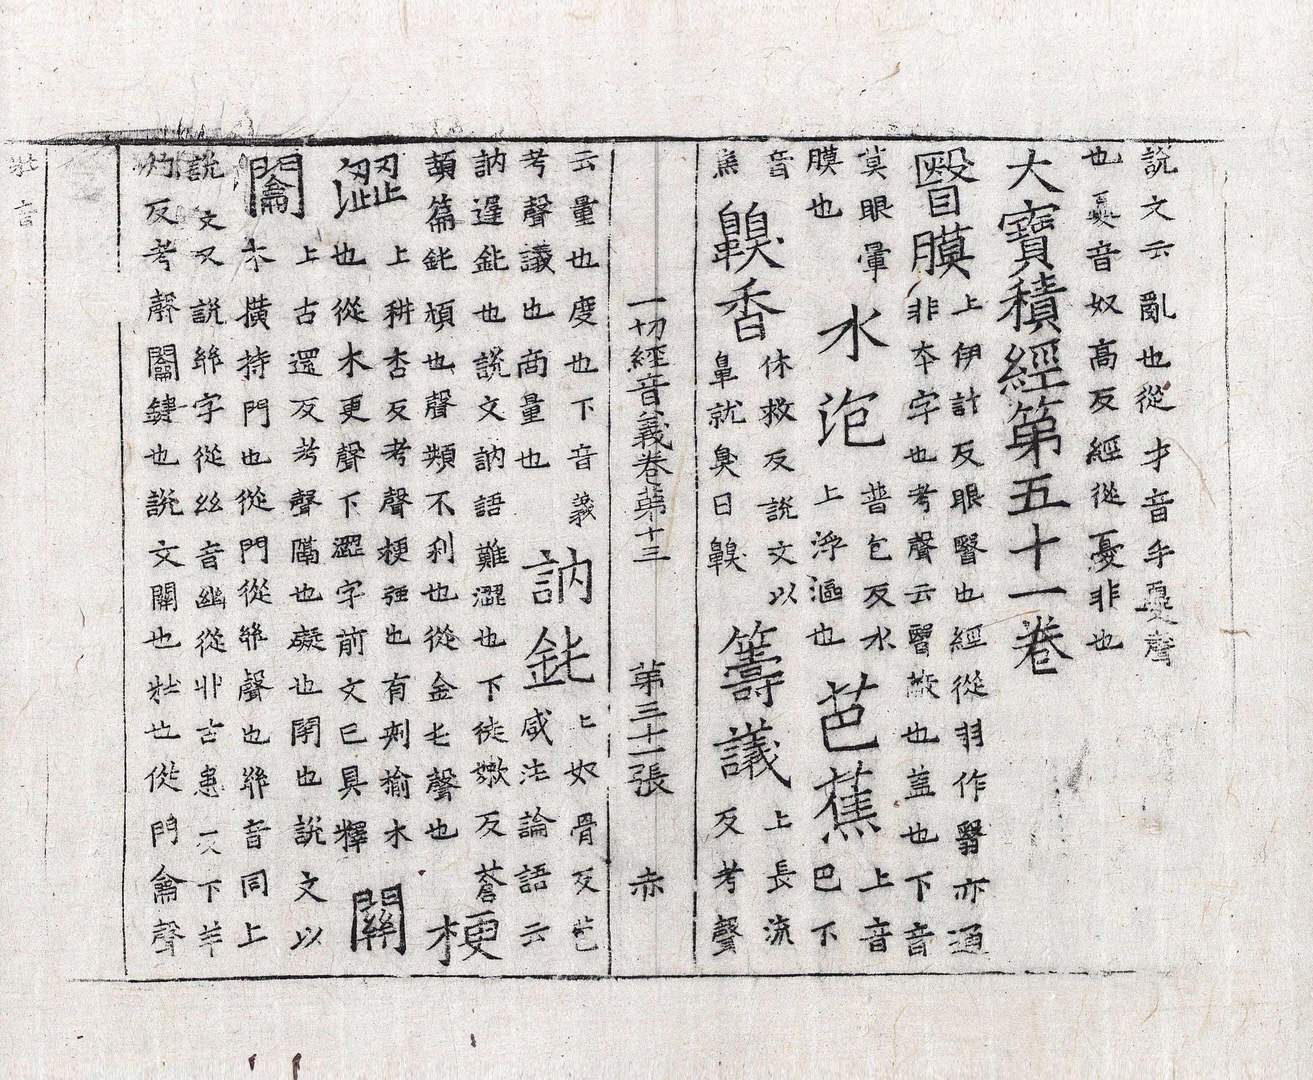 說文云亂也從才音手憂聲
也憂音奴高反經從憂非也
大寶積經第五十一卷
瞖膜 上伊計反眼瞖也經從羽作翳亦通
非夲字也考聲云瞖蔽也盖也下音
莫眼暈
膜也
水泡 普包反水
上浮漚也
芭蕉 上音
巴下
音
焦
齅香 休救反說文以
鼻就臭曰齅
籌議 上長流
反考聲
一切經音義卷第十三 第三十一張 赤
云量也度也下音義
考聲議也商量也
訥鈍 上如骨反芭
咸注論語云
訥遲鈍也說文訥語難澀也下徒嫩反蒼
頡篇鈍頑也聲類不利也從金屯聲也
梗
澀 上耕杏反考聲梗强也有刺揄木
也從木更聲下澀字前文已具釋
關
𨷲 上古還反考聲關也礙也閉也說文以
木橫持門也從門從𢇇聲也𢇇音同上
說文又說𢇇字從絲音幽從丱古患反下羊
灼反考聲𨷲鍵也說文關也牡也從門龠聲
牡音